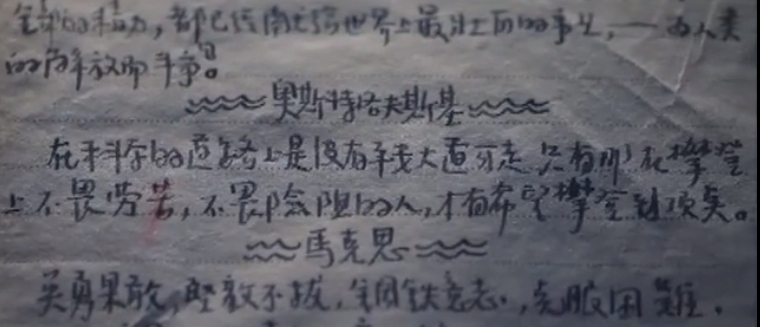 全部的精力,都已经献给世界上最壮丽的事业,—为人类
的解放而斗争。
奥斯特洛夫斯基
在科学的道路上是没有平坦大道可走 只有那在攀登
上不畏劳苦,不畏险阻的人,才有希望攀登到顶点。
马克思
英勇果敢,坚毅不拔,钢铁意志,克服困难,